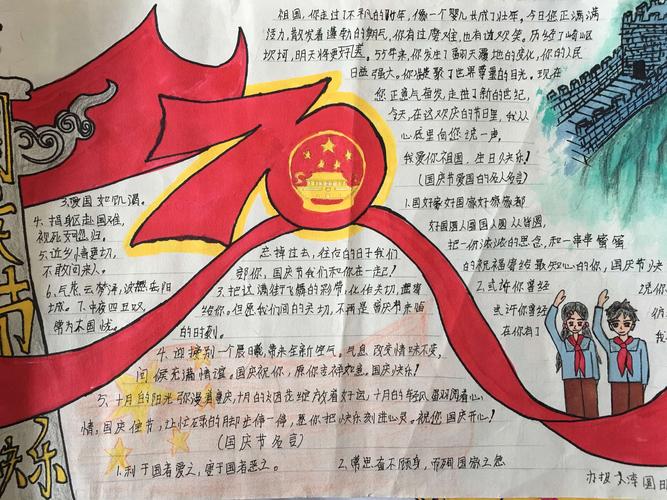 祖国,你走过了不平凡的
像一个婴儿长成了壮年,今日您正满满
活力,散发着蓬勃的朝气,你有过磨难,也有过欢笑。历经了崎岖
坎坷,明天将更
55年来,你发生了翻天覆地的变化,你的人民
日益强大。你凝聚了世界尊重的目光。现在
您正意气
走进了新的世纪,
今天,在这欢庆的节日里,我从
心底里向您说一声,
我爱你祖国,生日快乐!
(国庆节爱国的名人名言)
1.国好家好国家好
好国圆人圆国人圆
把一份浓浓的思念,和一串串蜜蜜
的祝福寄给最知心的你,国庆节快
2.
许你曾经
许你曾经
在你有了
3.爱国如饥渴。
4.捐躯赴国难,
视死
归。
5.近乡情更切,
不敢问来人。
6.气蒸云梦泽,波撼岳阳
城。7.中夜四五叹,
常为不国忧。
70
忘掉过去,往
的日子我们
国庆节我们和你在一起!
3.把这满街飞舞的彩带,化作关切,
给你。但愿我们间的关切,不再是
节来临
的时刻。
4.迎接别一个晨曦,带来全新空气。气息改变情味不变,
问候充满情谊。国庆祝你,愿你
国庆快乐!
5.十月的阳光弥漫着喜庆,十月的
花绽放着好运,十月的轻风
心
情,国庆佳节,让忙碌的脚步停一停,愿你把快乐刻进心灵。祝您国庆开心!
(国庆节名言)
1.利于国者爱之,害于国者恶之。
2.常思奋不顾身,而殉国家之急
国庆节
快乐
办报